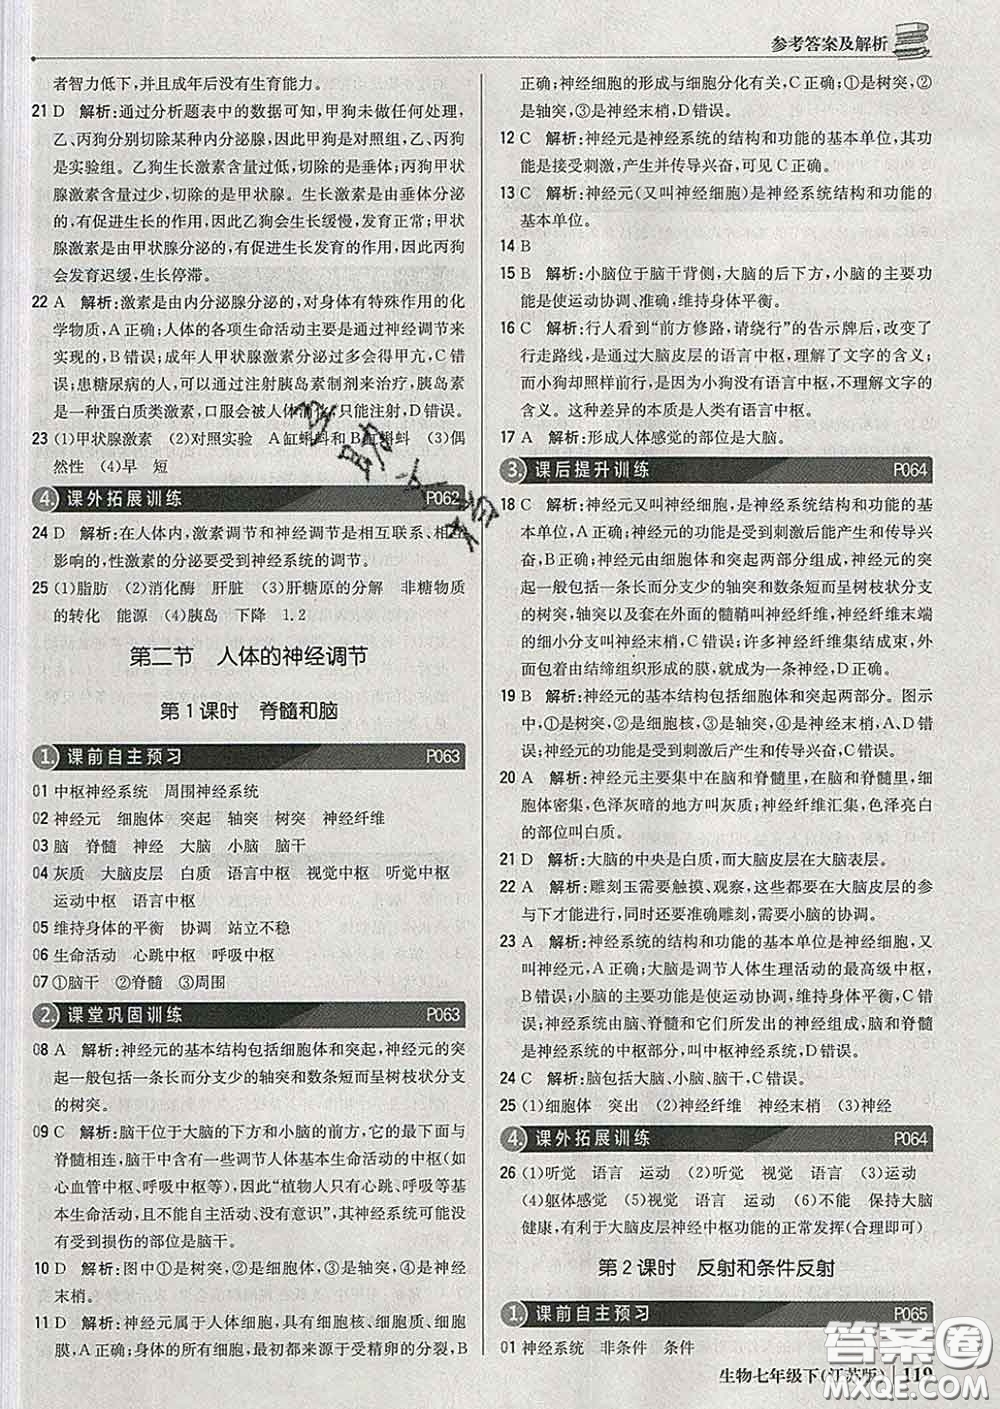 参考答案及解析
者智力低下,并且成年后没有生育能力。
21 D 解析:通过分析题表中的数据可知,甲狗未做任何处理,
乙、丙狗分别切除某种内分泌腺,因此甲狗是对照组,乙、丙狗
是实验组。乙狗生长激素含量过低,切除的是垂体;丙狗甲状
腺激素含量过少,切除的是甲状腺。生长激素是由垂体分泌
的,有促进生长的作用,因此乙狗会生长缓慢,发育正常;甲状
腺激素是由甲状腺分泌的,有促进生长发育的作用,因此丙狗
会发育迟缓,生长停滞。
22 A 解析:激素是由内分泌腺分泌的,对身体有特殊作用的化
学物质,A正确;人体的各项生命活动主要是通过神经调节来
实现的,B错误;成年人甲状腺激素分泌过多会得甲亢,C错
误;患糖尿病的人,可以通过注射胰岛素制剂来治疗,胰岛素
是一种蛋白质类激素,口服会被人体消化,只能注射,D错误。
23 (1)甲状腺激素 (2)对照实验 A缸蝌蚪和B缸蝌蚪 (3)偶
然性 (4)早 短
4. 课外拓展训练 P062
24 D 解析:在人体内,激素调节和神经调节是相互联系、相互
影响的,性激素的分泌要受到神经系统的调节。
25 (1)脂肪 (2)消化酶 肝脏 (3)肝糖原的分解 非糖物质
的转化 能源 (4)胰岛 下降 1.2
第二节 人体的神经调节
第1课时 脊髓和脑
1. 课前自主预习 P063
01 中枢神经系统 周围神经系统
02 神经元 细胞体 突起 轴突 树突 神经纤维
03 脑 脊髓 神经 大脑 小脑 脑干
04 灰质 大脑皮层 白质 语言中枢 视觉中枢 听觉中枢
运动中枢 语言中枢
05 维持身体的平衡 协调 站立不稳
06 生命活动 心跳中枢 呼吸中枢
07 ①脑干 ②脊髓 ③周围
2. 课堂巩固训练 P063
08 A 解析:神经元的基本结构包括细胞体和突起,神经元的突
起一般包括一条长而分支少的轴突和数条短而呈树枝状分支
的树突。
09 C 解析:脑干位于大脑的下方和小脑的前方,它的最下面与
脊髓相连,脑干中含有一些调节人体基本生命活动的中枢(如
心血管中枢、呼吸中枢等),因此“植物人只有心跳、呼吸、血
压,不能自主活动、没有意识”,其神经系统可能没
有受到损伤的部位是脑干。
10 D 解析:图中①是树突,②是细胞体,③是轴突,④是神经
末梢。
11 D 解析:神经元属于人体细胞,具有细胞核、细胞质、细胞
膜,A正确;身体的所有细胞,最初都来源于受精卵的分裂,B
正确;神经细胞的形成与细胞分化有关,C正确;①是树突,②
是轴突,③是神经末梢,D错误。
12 C 解析:神经元是神经系统的结构和功能的基本单位,其功
能是接受刺激,产生并传导兴奋,可见C正确。
13 C 解析:神经元(又叫神经细胞)是神经系统结构和功能的
基本单位。
14 B
15 B 解析:小脑位于脑干背侧,大脑的后下方,小脑的主要功
能是使运动协调、准确,维持身体平衡。
16 C 解析:行人看到“前方修路,请绕行”的告示牌后,改变了
行走路线,是通过大脑皮层的语言中枢,理解了文字的含义;
而小狗却照样前行,是因为小狗没有语言中枢,不理解文字的
含义。这种差异的本质是人类有语言中枢。
17 A 解析:形成人体感觉的部位是大脑。
3. 课后提升训练 P064
18 C 解析:神经元又叫神经细胞,是神经系统结构和功能的基
本单位,A正确;神经元的功能是受到刺激后能产生并传导兴
奋,B正确;神经元由细胞体和突起两部分组成,神经元的突
起一般包括一条长而分支少的轴突和数条短而呈树枝状分支
的树突,轴突以及套在外面的髓鞘叫神经纤维,神经纤维末端
的细小分支叫神经末梢,C错误;许多神经纤维集结成束,外
面包着由结缔组织形成的膜,就成为一条神经,D正确。
19 B 解析:神经元的基本结构包括细胞体和突起两部分。图示
中,①是树突,②是细胞核,③是轴突,④是神经末梢,A、D错
误;神经元的功能是受到刺激后产生并传导兴奋,C错误。
20 A 解析:神经元主要集中在脑和脊髓里,在脑和脊髓里,细
胞体密集,色泽灰暗的地方叫灰质;神经纤维汇集,色泽亮白
的部位叫白质。
21 D 解析:大脑的中央是白质,而大脑皮层在大脑表层。
22 A 解析:雕刻玉需要触摸、观察,这些都要在大脑皮层的参
与下才能进行,同时还要准确雕刻,需要小脑的协调。
23 A 解析:神经系统的结构和功能的基本单位是神经细胞,又
叫神经元,A正确;大脑是调节人体生理活动的最高级中枢,
B错误;小脑的主要功能是使运动协调、准确,维持身体平衡,
C错误;神经系统由脑、脊髓和它们所发出的神经组成,脑和脊髓
是神经系统的中枢部分,叫中枢神经系统,D错误。
24 C 解析:脑包括大脑、小脑、脑干,C错误。
25 (1)细胞体 突出 (2)神经纤维 神经末梢 (3)神经
4. 课外拓展训练 P064
26 (1)听觉 语言 运动 (2)听觉 视觉 语言 (3)运动
(4)躯体感觉 (5)视觉 语言 运动 (6)不能 保持大脑
健康,有利于大脑皮层神经中枢功能的正常发挥(合理即可)
第2课时 反射和条件反射
1. 课前自主预习 P065
01 神经系统 非条件 条件
生物七年级下(江苏版) 119
答案圈
MXQE.COM